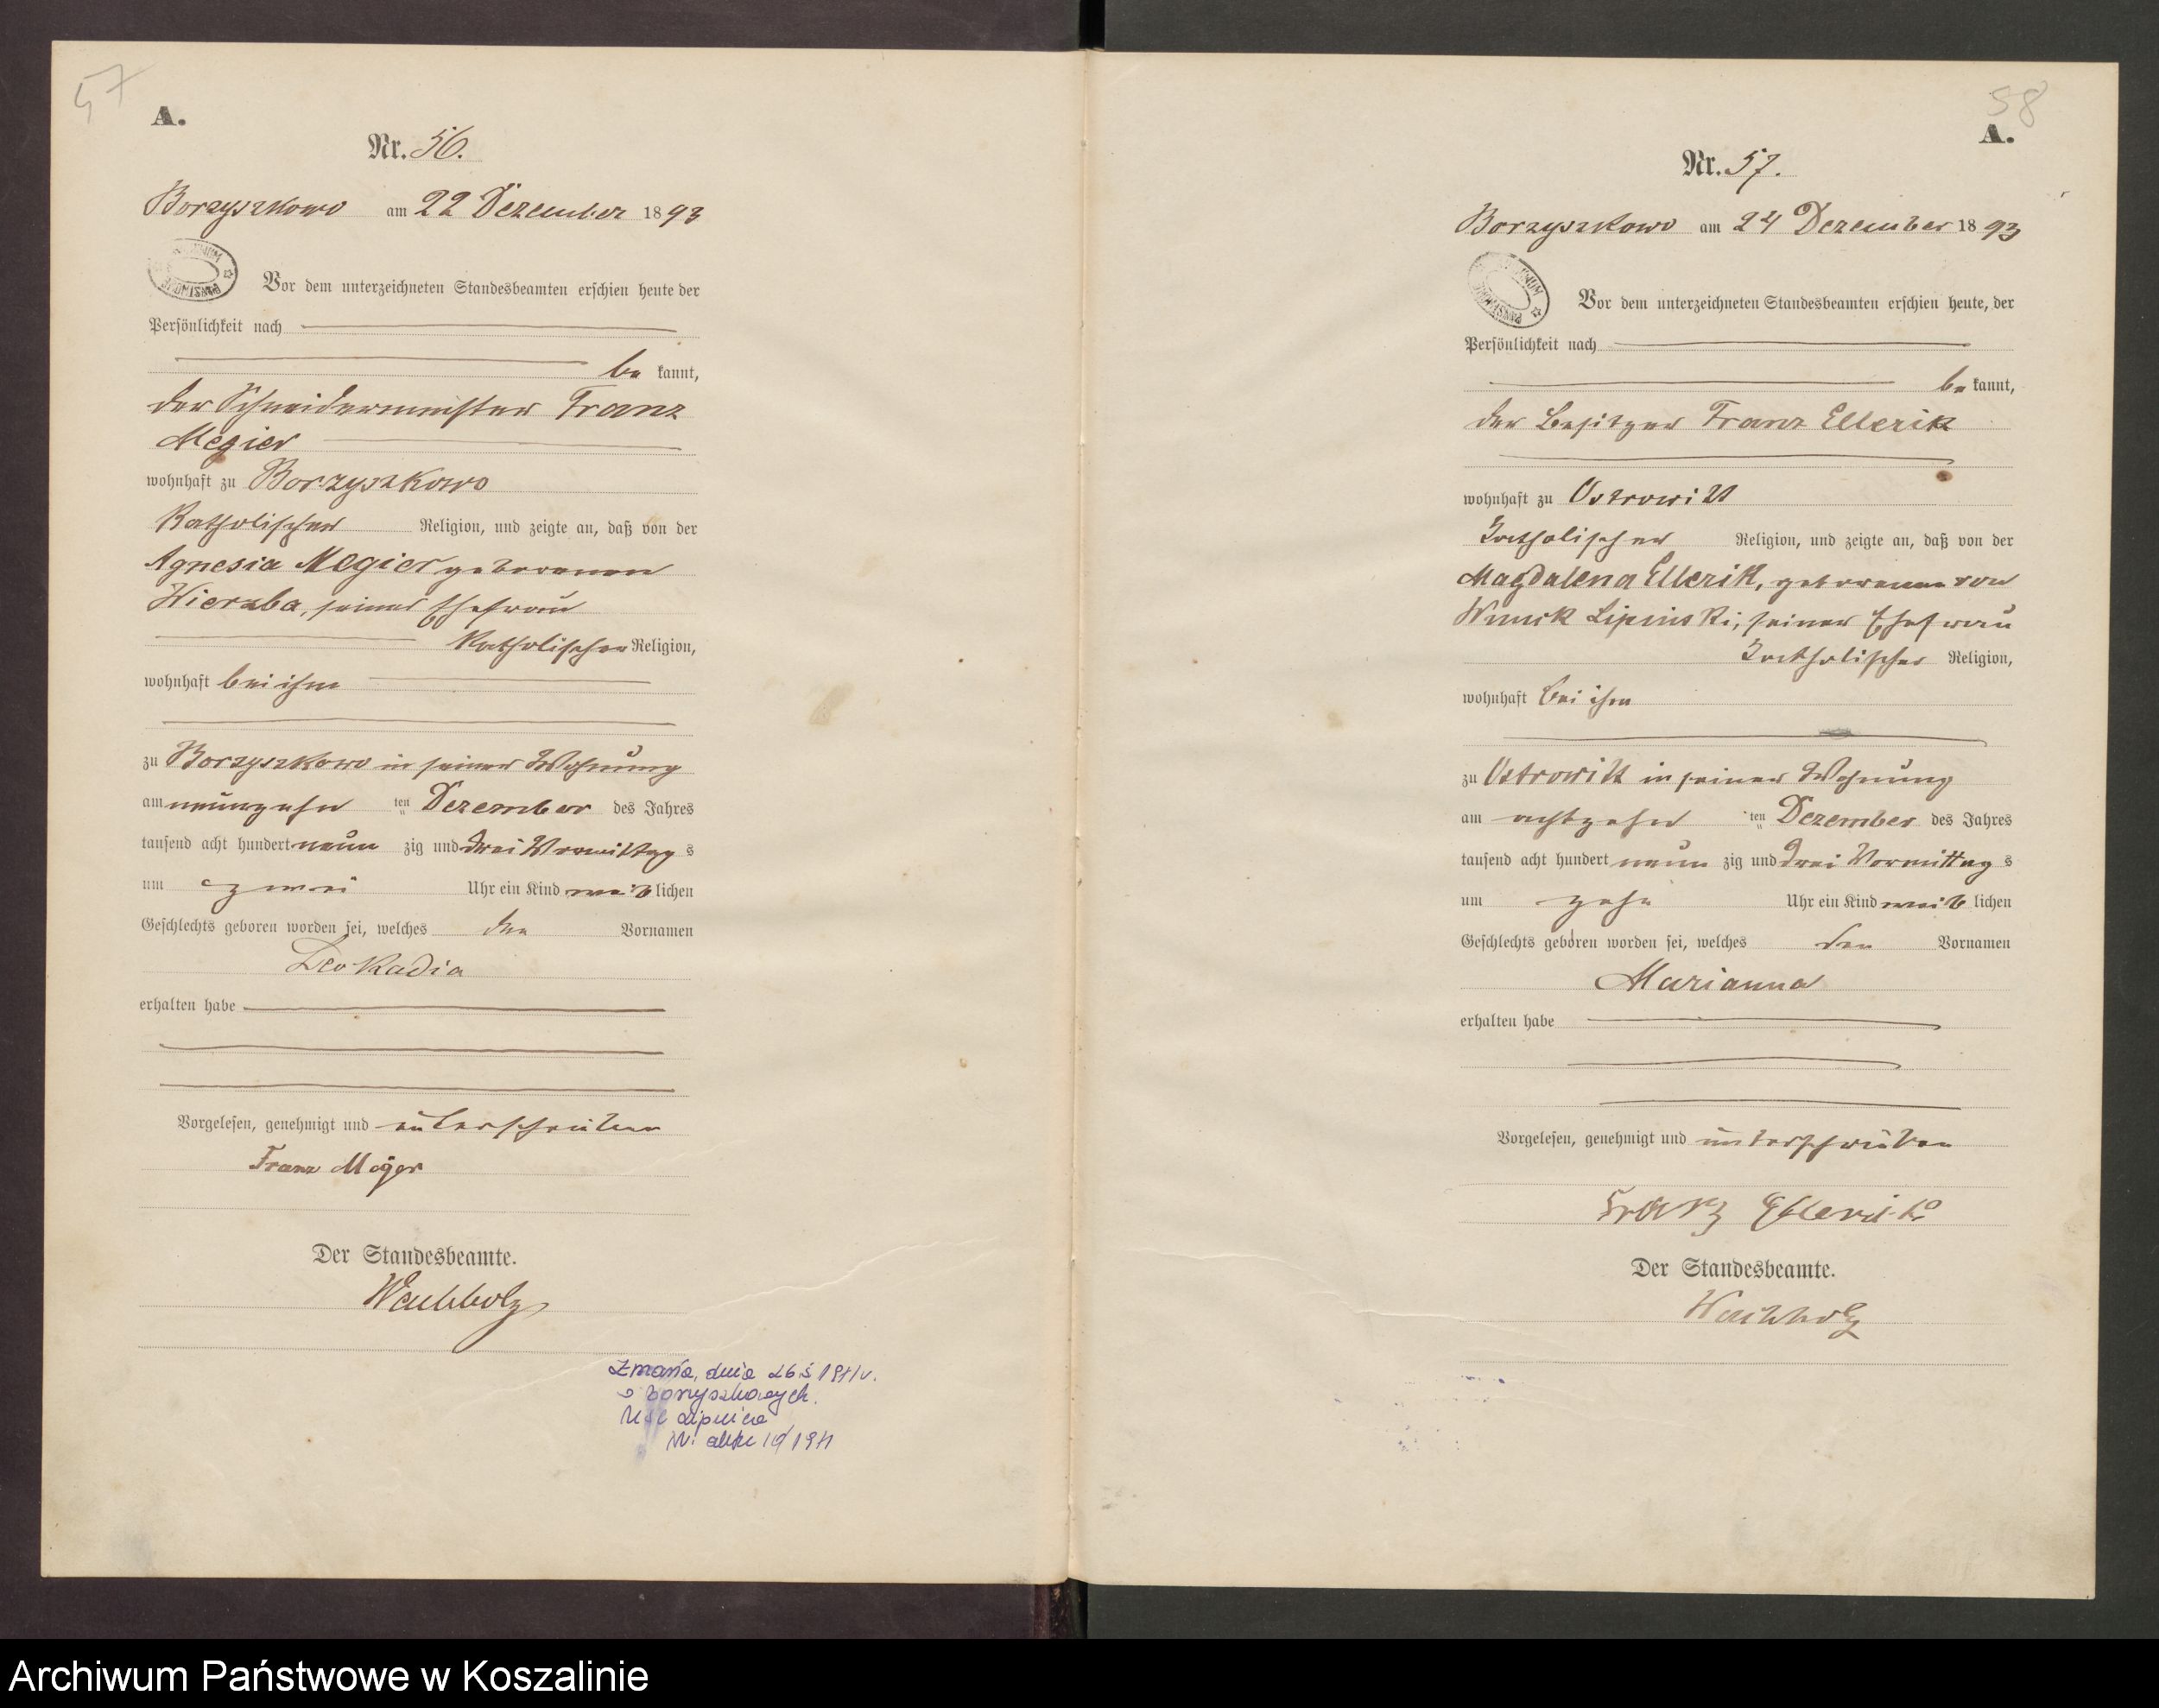 57
A.
Nr. 56.
Borzyszkowo am 22 Dezember 1893
Vor dem unterzeichneten Standesbeamten erschien heute, der
Persönlichkeit nach
be kannt,
der Schneidermeister Franz
Megier
wohnhaft zu Borzyszkowo
Katholischer Religion, und zeigte an, daß von der
Agnesia Megier geborenen
Wierzba, seiner Ehefrau
Katholischer Religion,
wohnhaft bei ihm
zu Borzyszkowo in seiner Wohnung
am neunzehn ten Dezember des Jahres
tausend acht hundert neun zig und drei Vormittag s
um zwei Uhr ein Kind weib lichen
Geschlechts geboren worden sei, welches den Vornamen
Leokadia
erhalten habe
Vorgelesen, genehmigt und unterschrieben
Franz Megier
Der Standesbeamte.
Wachholz
Zmarła, dnia
w Borzyszkowych.
USC Lipnica
58
A.
Nr. 57.
Borzyszkowo am 24 Dezember 1893
Vor dem unterzeichneten Standesbeamten erschien heute, der
Persönlichkeit nach
be kannt,
der Besitzer Franz Ellerik
wohnhaft zu Ostrowitt
Katholischer Religion, und zeigte an, daß von der
Magdalena Ellerik, geborenen von
Wnuck Lipinski, seiner Ehefrau
Katholischer Religion,
wohnhaft bei ihm
zu Ostrowitt in seiner Wohnung
am achtzehn ten Dezember des Jahres
tausend acht hundert neun zig und drei Vormittag s
um zehn Uhr ein Kind weib lichen
Geschlechts geboren worden sei, welches den Vornamen
Marianna
erhalten habe
Vorgelesen, genehmigt und unterschrieben
Franz Ellerik
Der Standesbeamte.
Wachholz
Archiwum Państwowe w Koszalinie